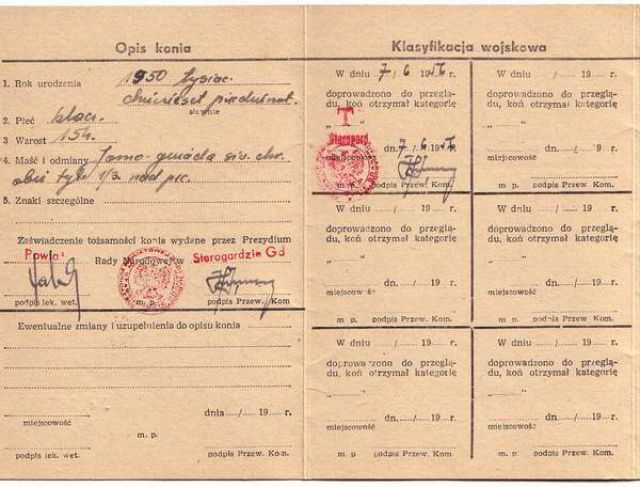 Opis konia
1. Rok urodzenia 1950 tysiąc
słownie
2. Płeć klacz
3. Wzrost 154
4. Maść i odmiany
5. Znaki szczególne
Zaświadczenie tożsamości konia wydane przez Prezydium
Powiat Rady Narodowej w Starogardzie Gd
podpis lek. wet. m. p. podpis Przew. Kom
Ewentualne zmiany i uzupełnienia do opisu konia
dnia / 19 r.
miejscowość
m. p.
podpis lek. wet. podpis Przew. Kom.
Klasyfikacja wojskowa
W dniu 7/6 1956 r.
doprowadzono do przeglą-
du, koń otrzymał kategorię
„ T "
Starogard dn. 7/6 1956 r.
miejscowość
m. p. podpis Przew. Kom.
W dniu / 19 r.
doprowadzono do przeglą-
du, koń otrzymał kategorię
dn. / 9 r.
miejscowość
m. p. podpis Przew. Kom.
W dniu / 19 r.
doprowadzono do przeglą-
du, koń otrzymał kategorię
dn. / 19 r.
miejscowość
m. p. podpis Przew. Kom.
W dniu / 19 r.
doprowadzono do przeglą-
du, koń otrzymał kategorię
dn. / 19 r.
miejscowość
m. p. podpis Przew. Kom.
W dniu / 19 r.
doprowadzono do przeglą-
du, koń otrzymał kategorię
dn. / 19 r.
miejscowość
m. p. podpis Przew. Kom.
W dniu / 19 r.
doprowadzono do przeglą-
du, koń otrzymał kategorię
dn. / 19 r.
miejscowość
m. p. podpis Przew. Kom.